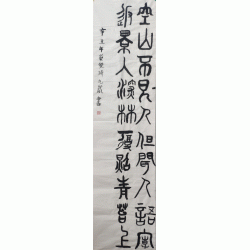 空山不見人但聞人語響
返景入深林復照青苔上
辛丑年夏九歲書